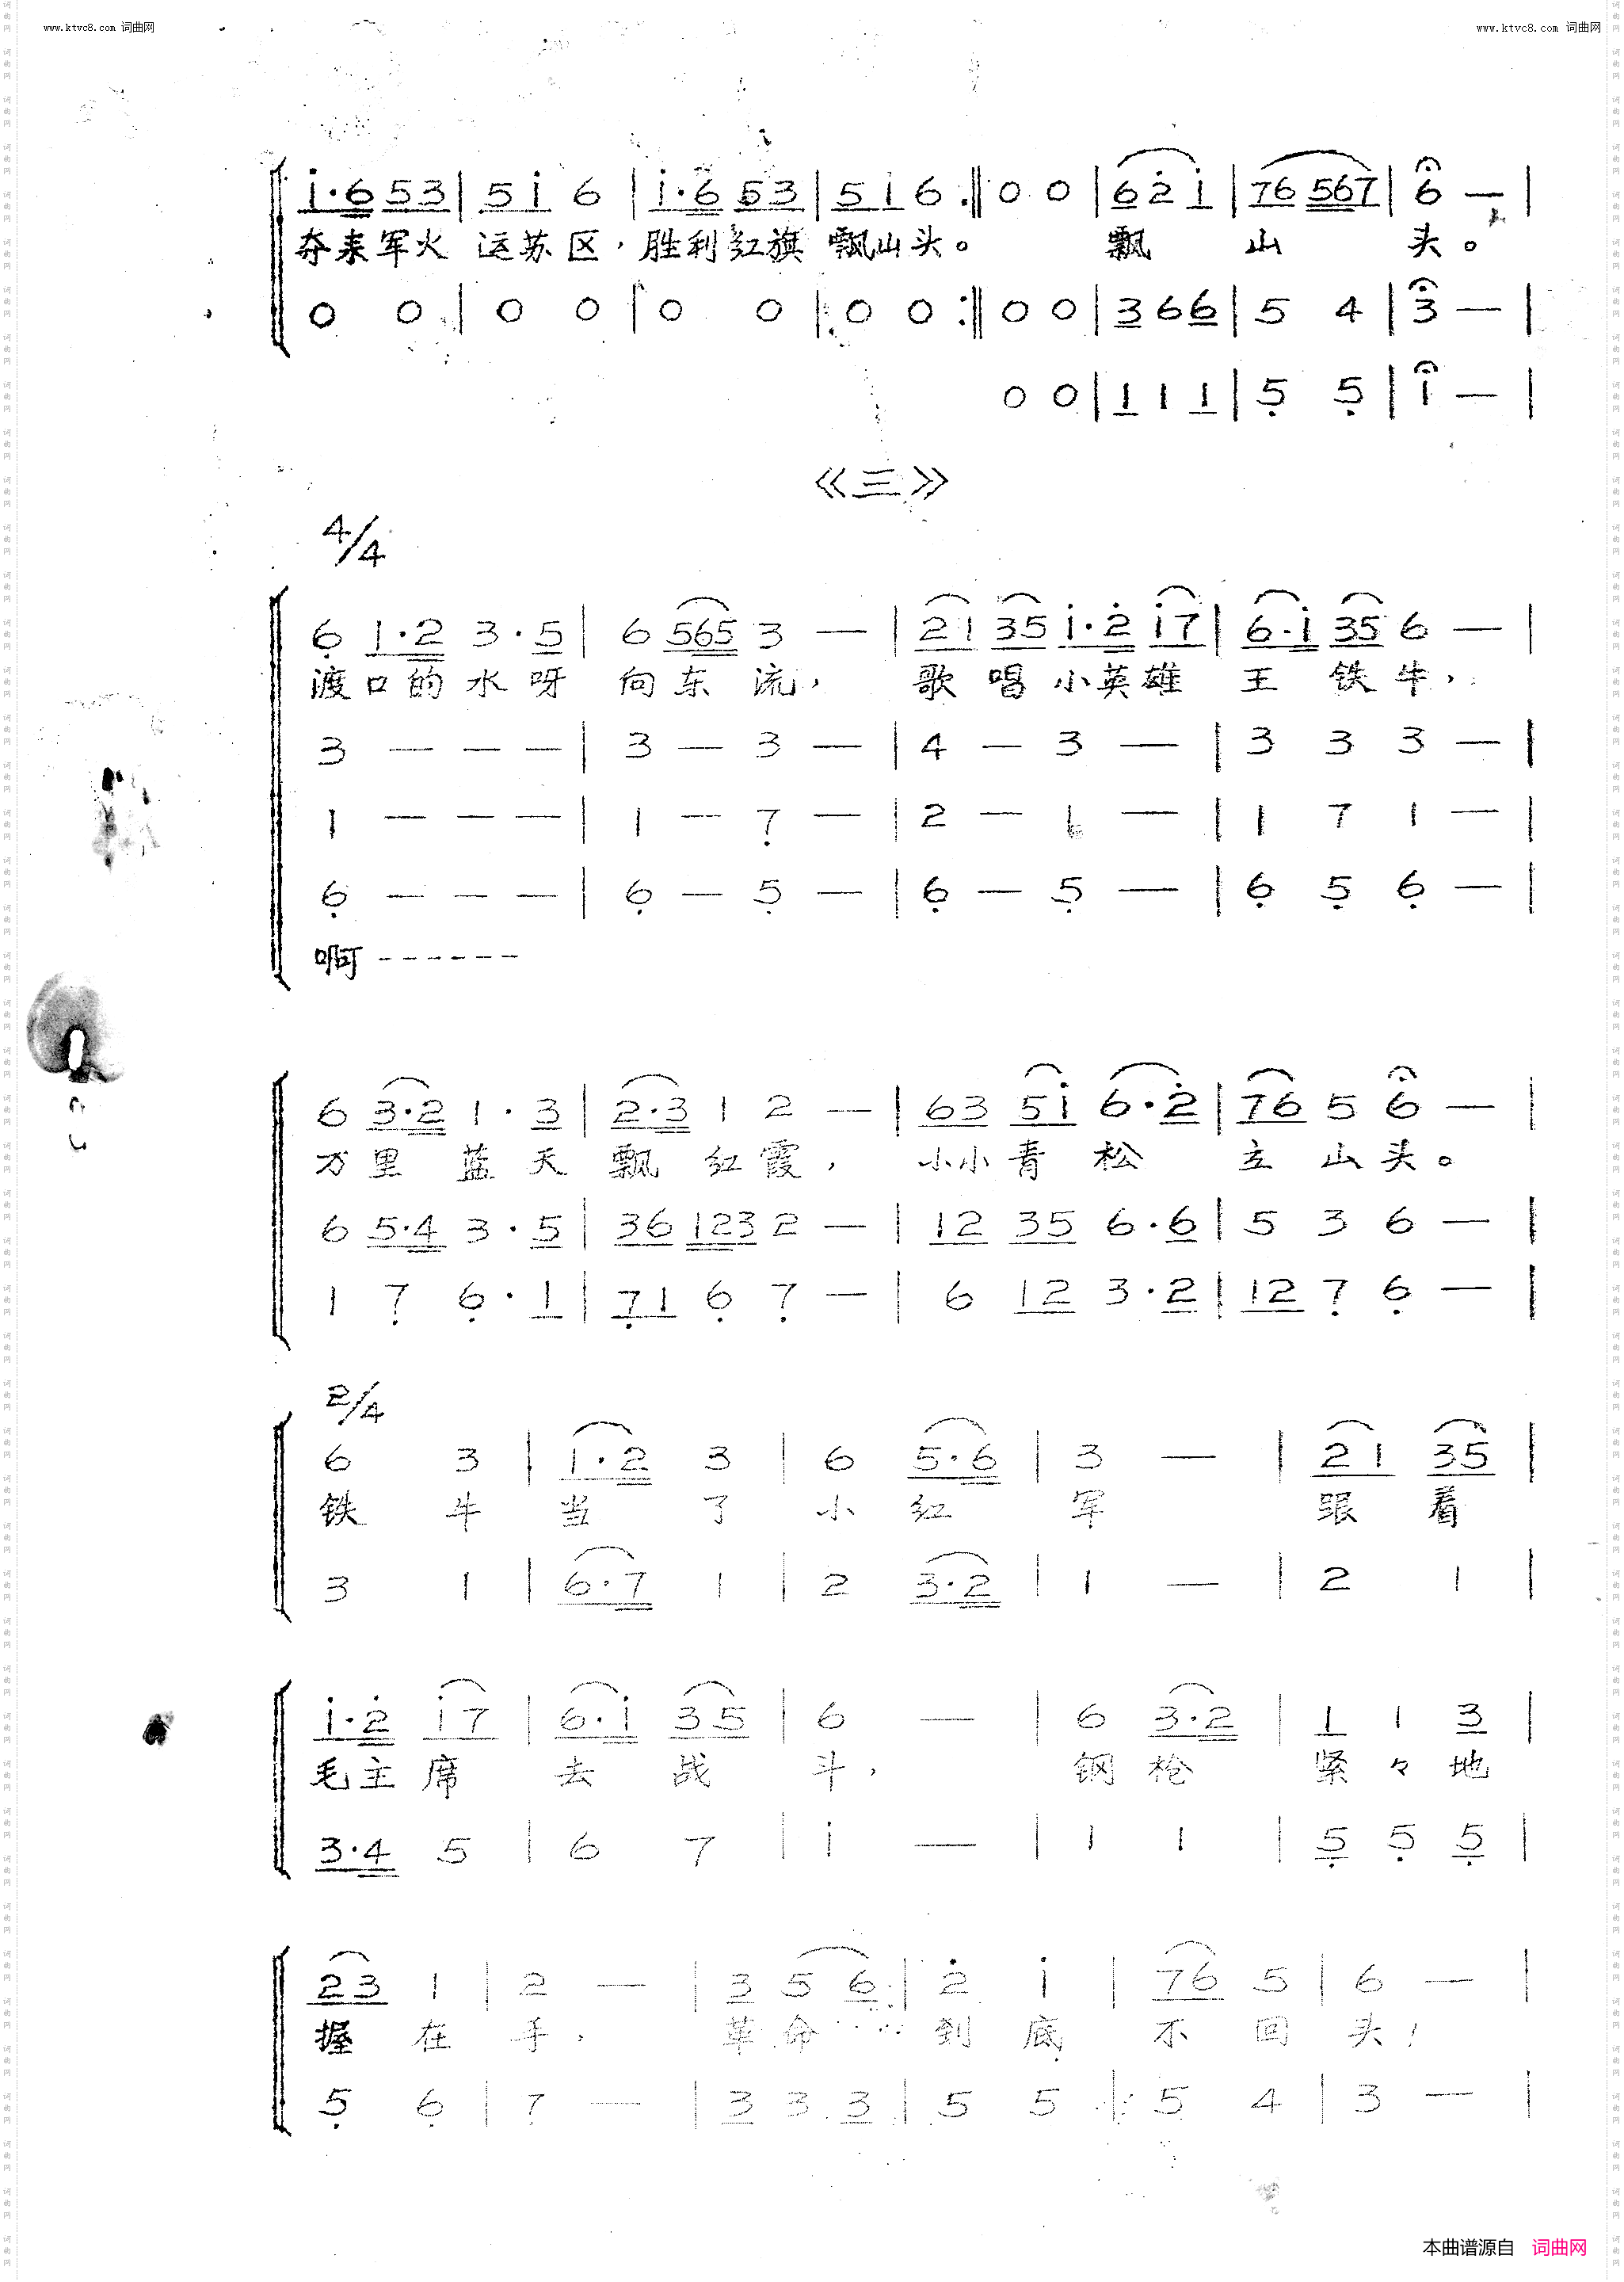 www.ktvc8.com 词曲网
www.ktvc8.com 词曲网
i·6 53 | 5 i 6 | i·6 53 | 5 i 6 :‖ 0 0 | 6 2̇ i | 76 567 | 6 — |
夺来军火 运苏区，胜利红旗 飘山头。 飘 山 头。
0 0 | 0 0 | 0 0 | 0 0 :‖ 0 0 | 3 6 6 | 5 4 | 3 — |
0 0 | 1 1 1 | 5̣ 5̣ | 1 — |
《三》
4/4
6̣ 1·2 3·5 | 6 565 3 — | 21 35 i·2̇ i7 | 6·i 35 6 — |
渡口的水呀 向东流， 歌唱小英雄 王铁牛，
3 — — — | 3 — 3 — | 4 — 3 — | 3 3 3 — |
1 — — — | 1 — 7̣ — | 2 — 1 — | 1 7 1 — |
6̣ — — — | 6̣ — 5̣ — | 6̣ — 5̣ — | 6̣ 5̣ 6̣ — |
啊-------
6 3·2 1·3 | 2·3 1 2 — | 63 5i 6·2̇ | 76 5 6 — |
万里蓝天飘红霞， 小小青松 立山头。
6 5·4 3·5 | 36 123 2 — | 12 35 6·6 | 5 3 6 — |
1 7̣ 6̣·1 | 7̣1 6̣ 7̣ — | 6 12 3·2 | 12 7̣ 6̣ — |
2/4
6 3 | 1·2 3 | 6 5·6 | 3 — | 21 35 |
铁牛当了小红军 跟着
3 1 | 6·7 1 | 2 3·2 | 1 — | 2 1 |
i·2̇ i7 | 6·i 35 | 6 — | 6 3·2 | 1 1 3 |
毛主席 去战斗， 钢枪 紧々地
3·4 5 | 6 7 | i — | 1 1 | 5̣ 5̣ 5̣ |
23 1 | 2 — | 3 5 6 | 2̇ i | 76 5 | 6 — |
握在手， 革命 到底 不回头！
5̣ 6̣ | 7̣ — | 3 3 3 | 5 5 | 5 4 | 3 — |
本曲谱源自 词曲网